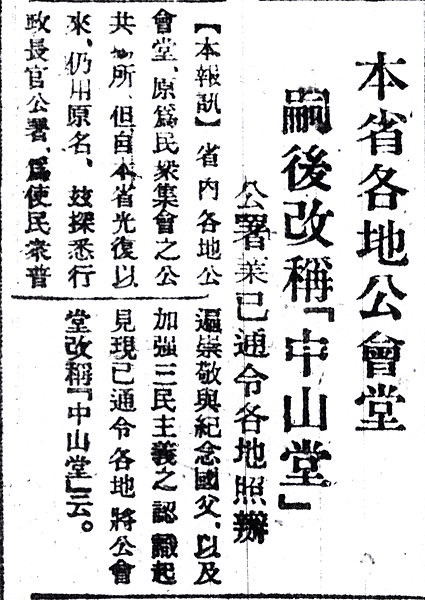 本省各地公會堂
嗣後改稱「中山堂」
公署業已通令各地照辦
【本報訊】省內各地公
會堂、原爲民衆集會之公
共所、但自本省光復以
來、仍用原名、玆探悉行
政長官公署、爲使民衆普
遍崇敬與紀念國父、以及
加强三民主義之認識起
見現已通令各地將公會
堂改稱「中山堂」云。